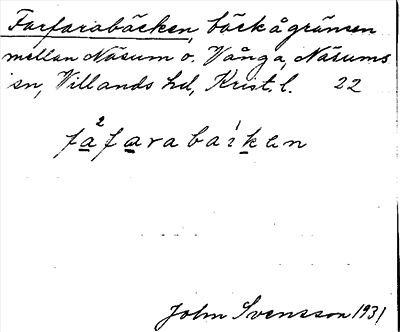 Farfarabäcken, bäck å gränsen
mellan Näsum o. Vånga, Näsums
sn, Villands hd, Krist. l. 22
fa²farabai¹ken
John Svensson 1931